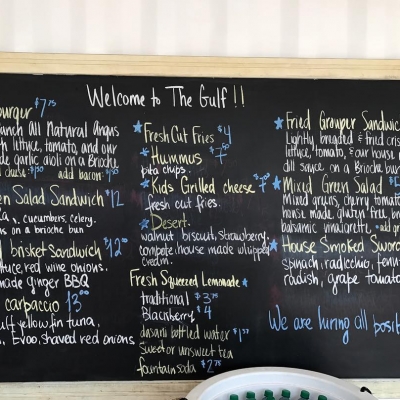 Welcome to The Gulf !!
burger $7.75
ranch All Natural Angus
th lettuce, tomato, and our
de garlic aioli on a Brioche
cheese add bacon
en Salad Sandwich $12
, cucumbers, celery.
on a brioche bun
d brisket sandwich $12.00
uce, red wine onions.
made ginger BBQ
carpaccio 13.00
uff yellow fin tuna,
, Evoo, shaved red onions
Fresh Cut Fries $4
Hummus
pita chips.
Kids Grilled cheese
fresh cut fries.
Desert.
walnut biscuit, strawberry,
compote, house made whipped
cream.
Fresh Squeezed Lemonade
traditional $3.75
Blackberry $4
dasani bottled water
Sweet or unsweet tea
fountain soda $2.75
Fried Grouper Sandwic
Lightly breaded & fried cris
lettuce, tomato, & our house m
dill sauce on a Brioche bu
Mixed Green Salad
Mixed greens, cherry tomato
house made gluten free br
balsamic vinaigrette
House Smoked Swor
spinach, radicchio, fenn
radish, grape tomato
We are hiring all posit